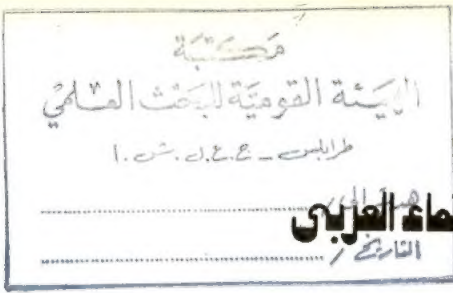 مكتبة
الهيئة القومية للبحث العلمي
طرابلس - ج.ع.ل.ش.ا
هدية الى /
نماء العربى
التاريخ /